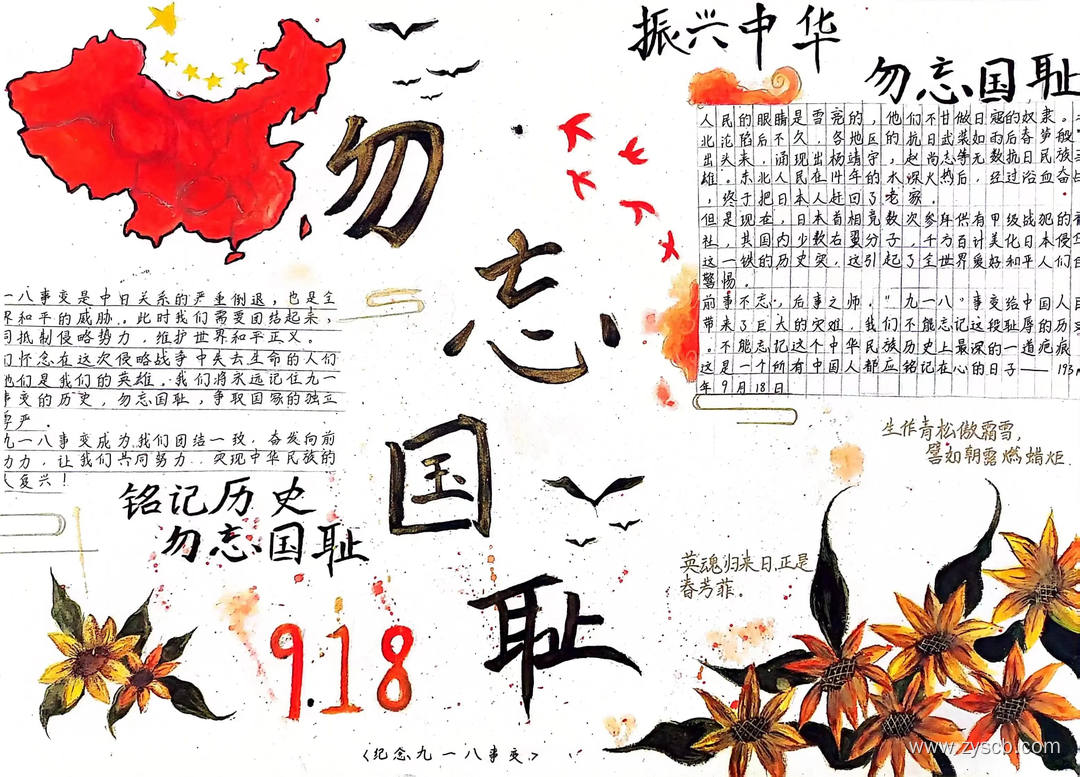 振兴中华
勿忘国耻
勿
忘
国
耻
人民的眼睛是雪亮的,他们不甘做日寇的奴隶。
北沦陷后不久,各地区的抗日武装如雨后春笋般
出头来,涌现出杨靖宇,赵尚志等无数抗日民族
雄。东北人民在14年的水深火热后,经过浴血奋战
,终于把日本人赶回了老家。
但是现在,日本首相竟数次参拜供有甲级战犯的
社,其国内少数右翼分子,千方百计美化日本侵
这一铁的历史实,这引起了全世界爱好和平人们
警惕。
前事不忘,后事之师,"九一八"事变给中国人
带来了巨大的灾难,我们不能忘记这段耻辱的历
。不能忘记这个中华民族历史上最深的一道疤痕
这是一个所有中国人都应铭记在心的日子——193
年9月18日
一八事变是中日关系的严重倒退,也是全
界和平的威胁。此时我们需要团结起来,
同抵制侵略势力,维护世界和平正义。
们怀念在这次侵略战争中失去生命的人们
他们是我们的英雄。我们将永远记住九一
事变的历史,勿忘国耻,争取国家的独立
尊严。
九一八事变成为我们团结一致,奋发向前
动力,让我们共同努力..实现中华民族的
复兴!
铭记历史
勿忘国耻
9.18
生作青松傲霜雪,
譬如朝露燃蜡炬.
英魂归来日,正是
春芳菲。
<纪念九一八事变>
www.zyscb.com